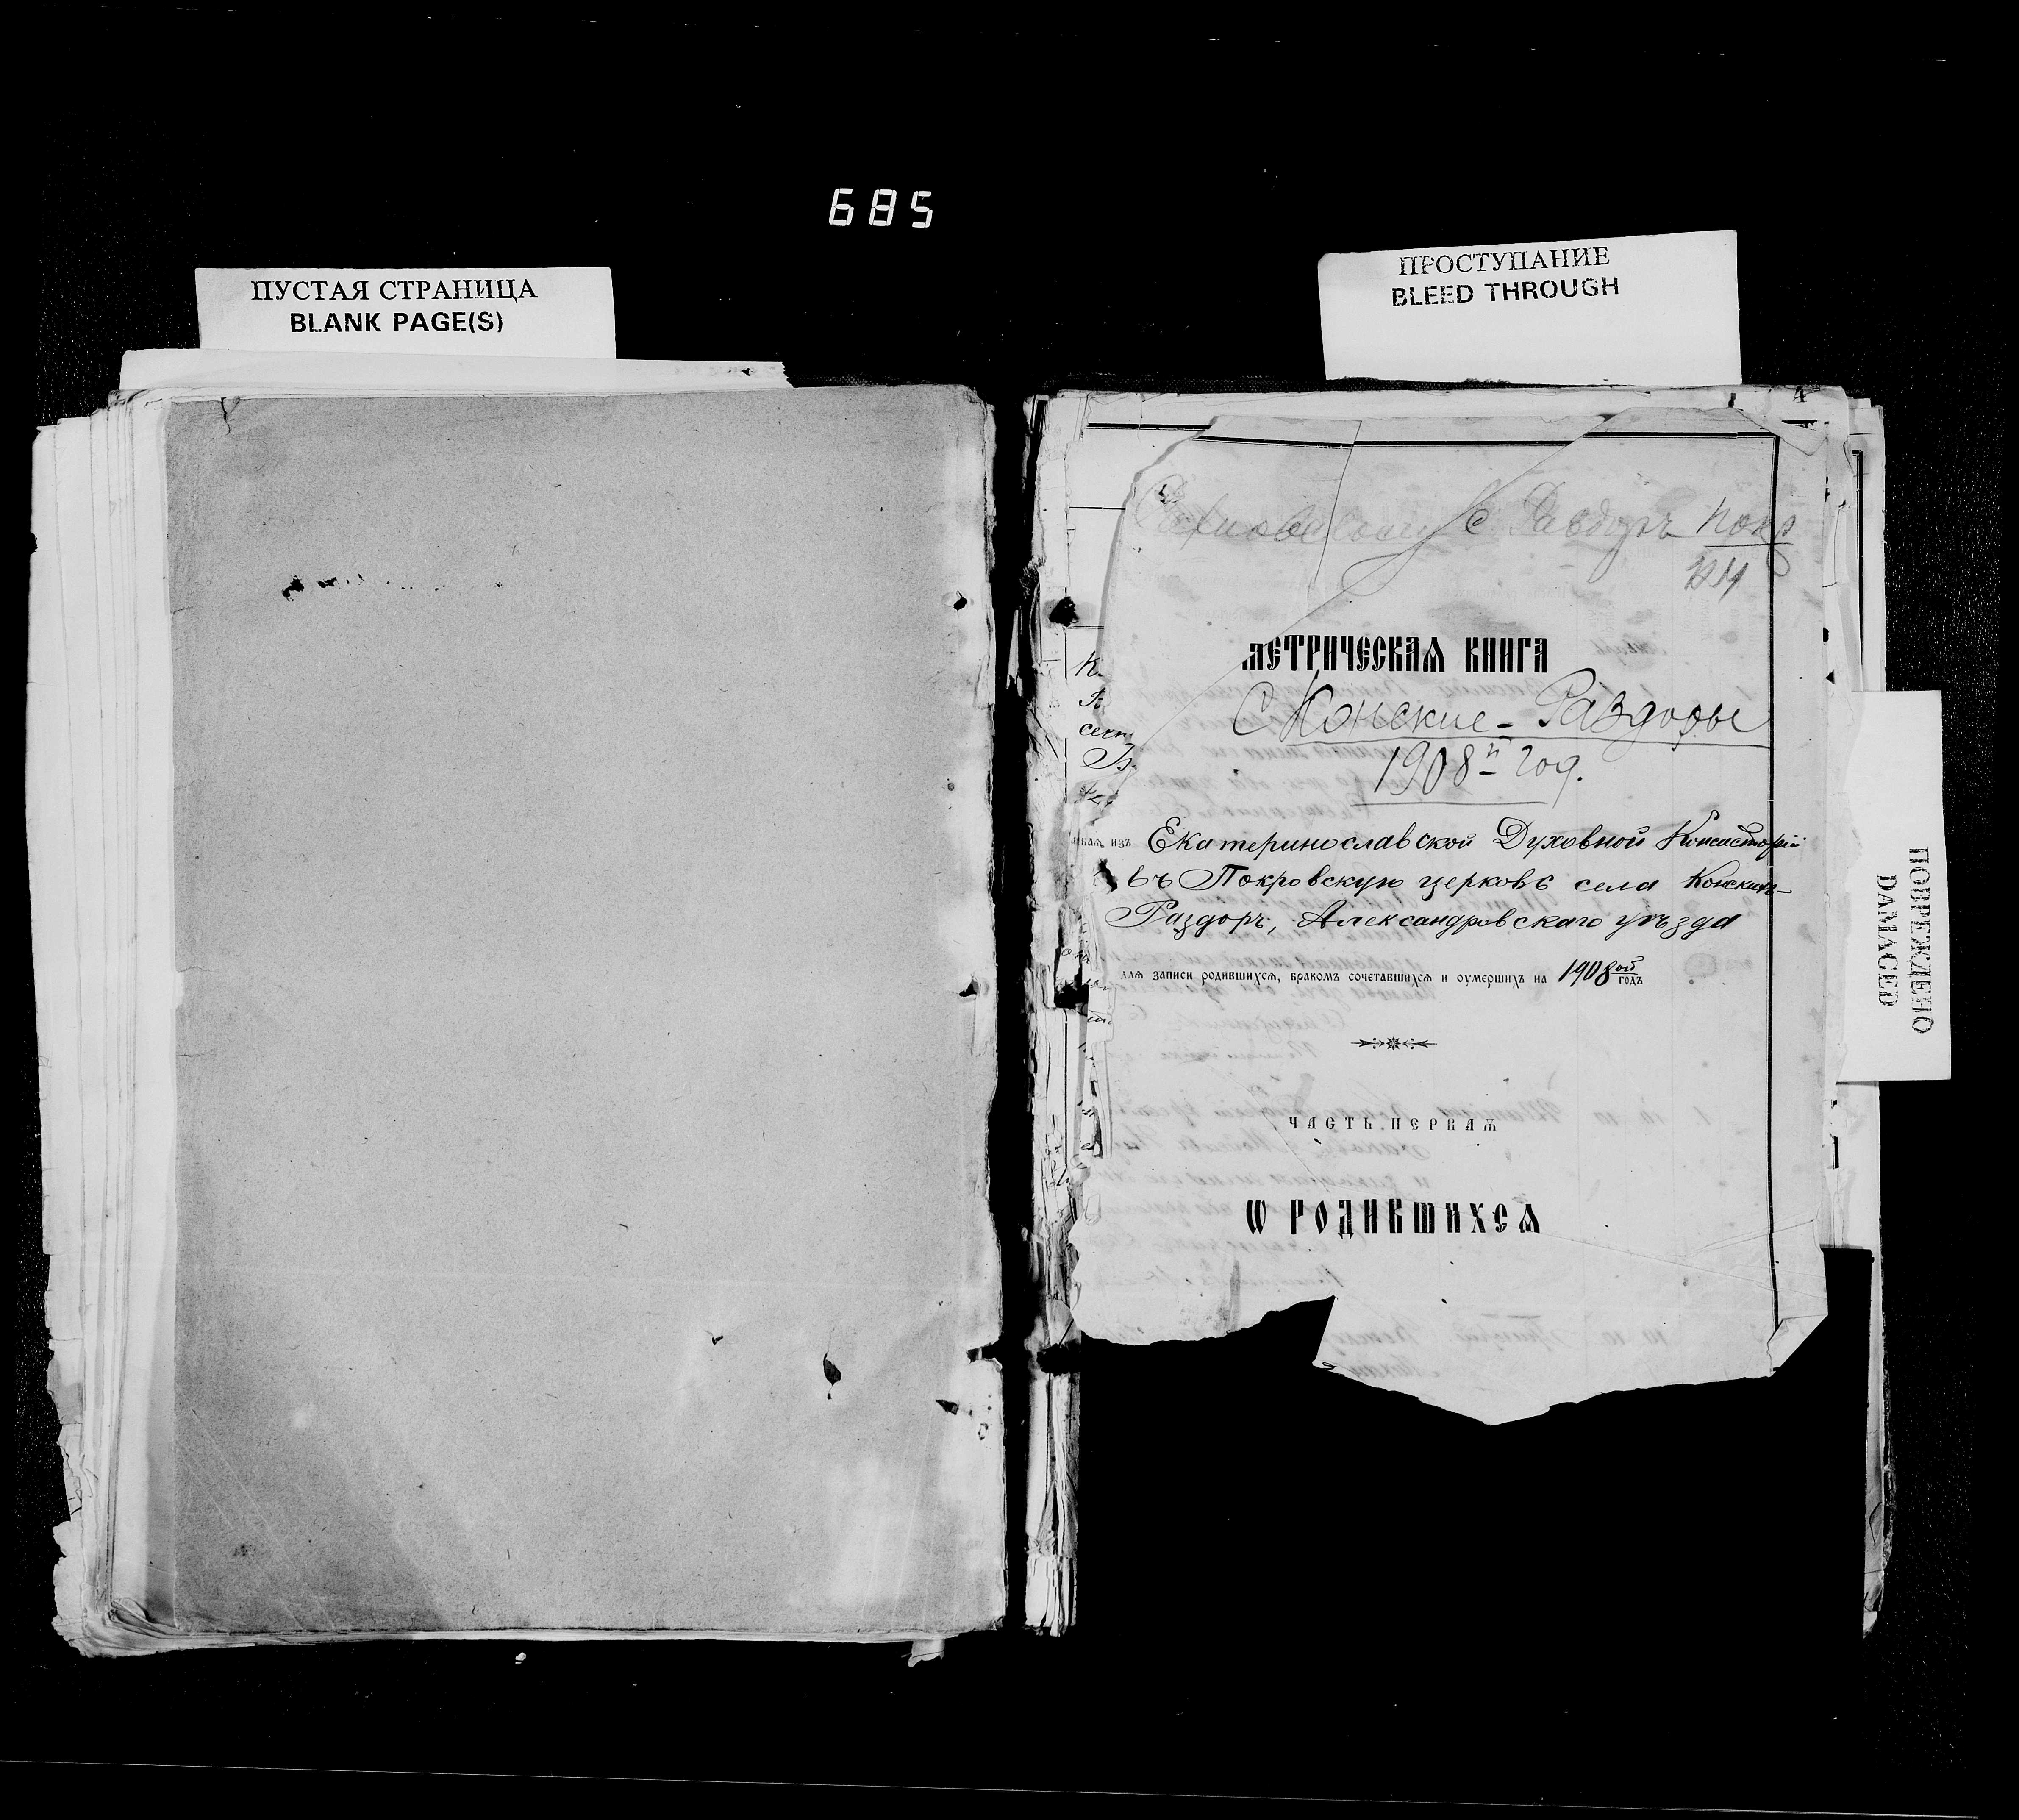 685
ПУСТАЯ СТРАНИЦА
BLANK PAGE(S)
ПРОСТУПАНИЕ
BLEED THROUGH
4
с Раздоръ Покр
МЕТРИЧЕСКАѦ КНИГА
С Конские-Раздоры
1908й год.
изъ Екатеринославской Духовной Консисторіи
въ Покровскую церковь села Конскихъ-
Раздоръ, Александровскаго уѣзда
для записи родившихсѧ, бракомъ сочетавшихсѧ и оумершихъ на 1908ой годъ
ЧАСТЬ ПЕРВАѦ
Ѡ РОДИВШИХСѦ
ПОВРЕЖДЕНО
DAMAGED